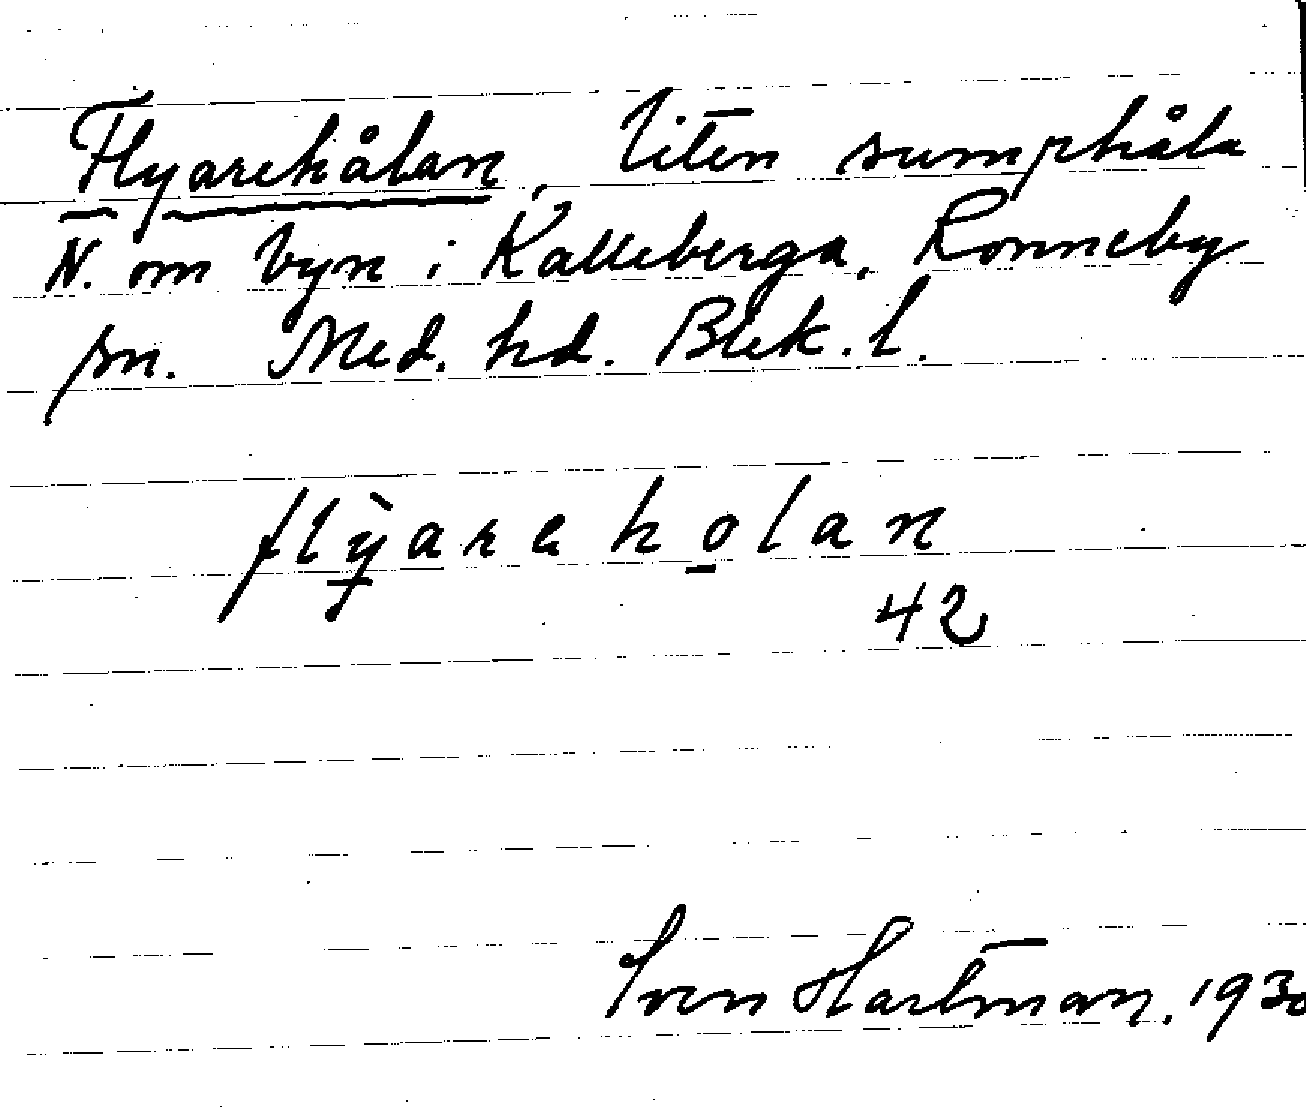 Flyarehålan, liten sumphåla
N. om byn i Kalleberga, Ronneby
sn. Med. hd. Blek. l.
flỳarehọlan
42
Sven Hartman, 1930